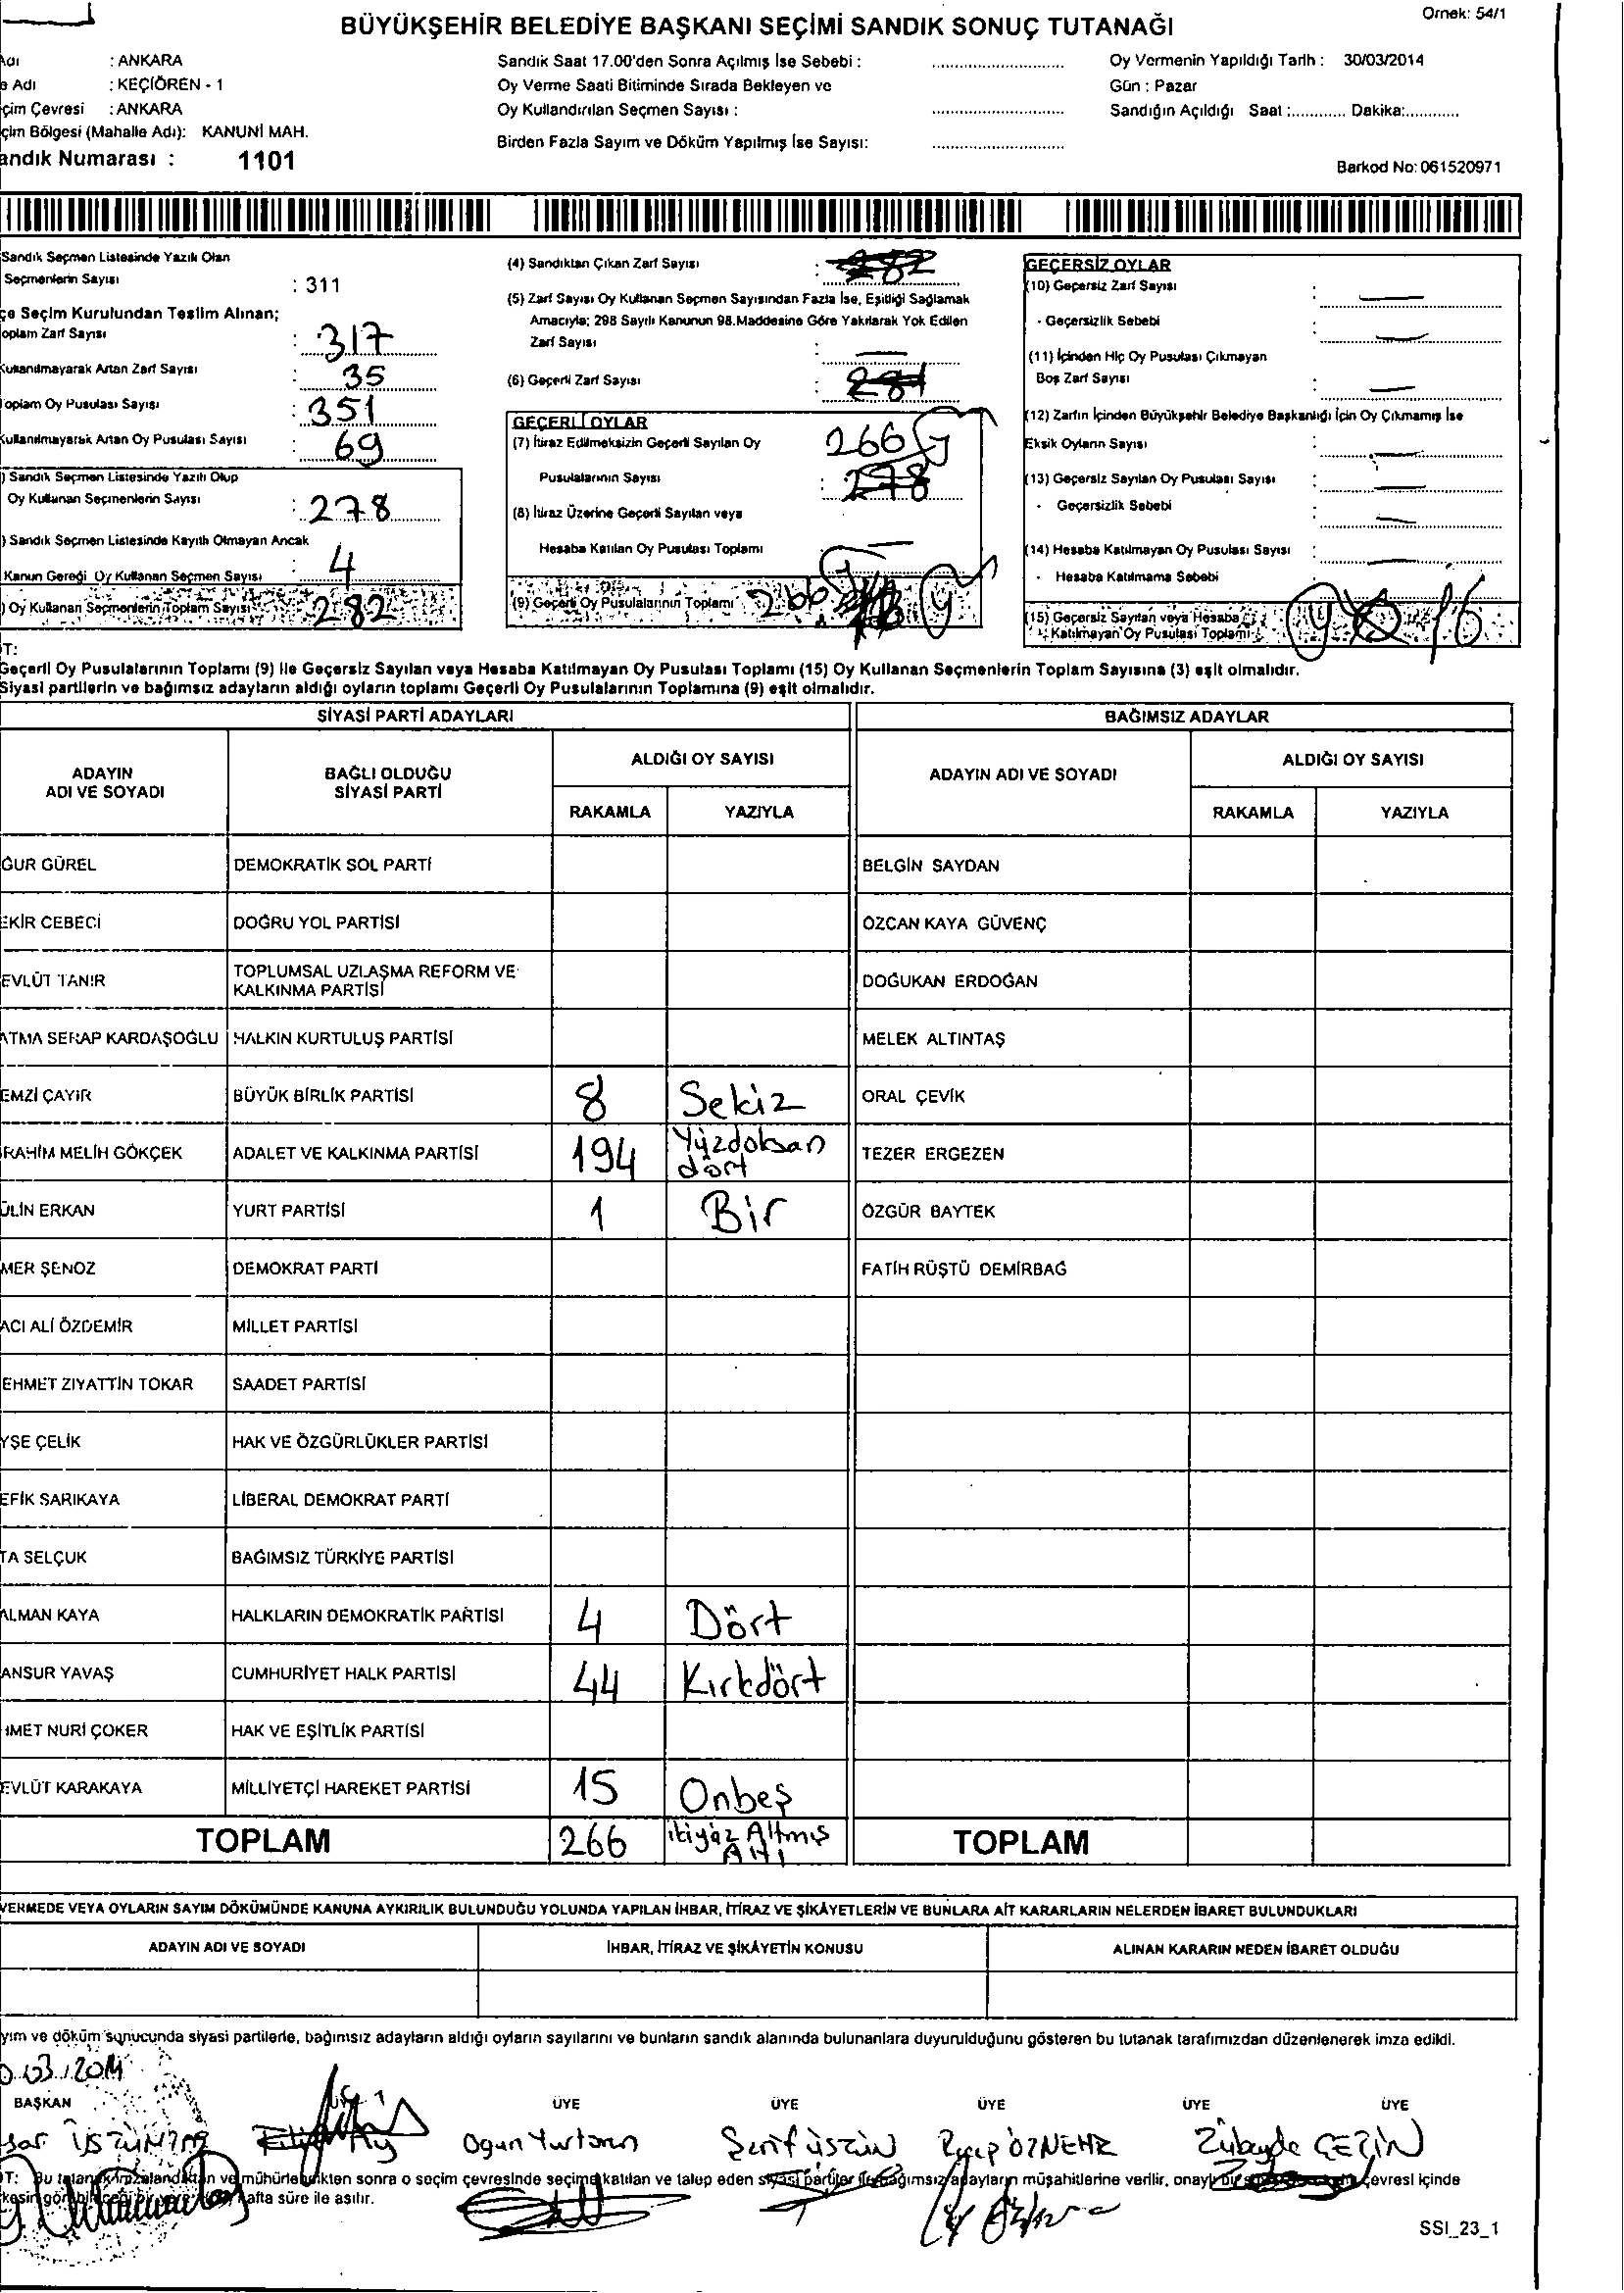 Örnek: 54/1
BÜYÜKŞEHİR BELEDİYE BAŞKANI SEÇİMİ SANDIK SONUÇ TUTANAĞI
Adı : ANKARA
e Adı : KEÇİÖREN - 1
çim Çevresi : ANKARA
çim Bölgesi (Mahalle Adı): KANUNİ MAH.
andık Numarası : 1101
Sandık Saat 17.00'den Sonra Açılmış İse Sebebi :
Oy Verme Saati Bitiminde Sırada Bekleyen ve
Oy Kullandırılan Seçmen Sayısı :
Birden Fazla Sayım ve Döküm Yapılmış İse Sayısı:
Oy Vermenin Yapıldığı Tarih : 30/03/2014
Gün : Pazar
Sandığın Açıldığı Saat :............ Dakika:............
Barkod No: 061520971
Sandık Seçmen Listesinde Yazılı Olan
Seçmenlerin Sayısı : 311
çe Seçim Kurulundan Teslim Alınan;
oplam Zarf Sayısı : 317
Kullanılmayarak Artan Zarf Sayısı : 35
oplam Oy Pusulası Sayısı : 351
Kullanılmayarak Artan Oy Pusulası Sayısı : 69
) Sandık Seçmen Listesinde Yazılı Olup
Oy Kullanan Seçmenlerin Sayısı : 278
) Sandık Seçmen Listesinde Kayıtlı Olmayan Ancak
Kanun Gereği Oy Kullanan Seçmen Sayısı : 4
) Oy Kullanan Seçmenlerin Toplam Sayısı : 282
(4) Sandıktan Çıkan Zarf Sayısı : 282
(5) Zarf Sayısı Oy Kullanan Seçmen Sayısından Fazla İse, Eşitliği Sağlamak
Amacıyla; 298 Sayılı Kanunun 98.Maddesine Göre Yakılarak Yok Edilen
Zarf Sayısı : —
(6) Geçerli Zarf Sayısı : 281
GEÇERLİ OYLAR
(7) İtiraz Edilmeksizin Geçerli Sayılan Oy 266
Pusulalarının Sayısı : 278
(8) İtiraz Üzerine Geçerli Sayılan veya
Hesaba Katılan Oy Pusulası Toplamı : —
(9) Geçerli Oy Pusulalarının Toplamı 266
GEÇERSİZ OYLAR
(10) Geçersiz Zarf Sayısı : —
- Geçersizlik Sebebi : —
(11) İçinden Hiç Oy Pusulası Çıkmayan
Boş Zarf Sayısı : —
(12) Zarfın İçinden Büyükşehir Belediye Başkanlığı İçin Oy Çıkmamış İse
Eksik Oyların Sayısı : —
(13) Geçersiz Sayılan Oy Pusulası Sayısı : —
- Geçersizlik Sebebi : —
(14) Hesaba Katılmayan Oy Pusulası Sayısı : —
- Hesaba Katılmama Sebebi :
(15) Geçersiz Sayılan veya Hesaba
Katılmayan Oy Pusulası Toplamı : 16
T:
Geçerli Oy Pusulalarının Toplamı (9) ile Geçersiz Sayılan veya Hesaba Katılmayan Oy Pusulası Toplamı (15) Oy Kullanan Seçmenlerin Toplam Sayısına (3) eşit olmalıdır.
Siyasi partilerin ve bağımsız adayların aldığı oyların toplamı Geçerli Oy Pusulalarının Toplamına (9) eşit olmalıdır.
SİYASİ PARTİ ADAYLARI BAĞIMSIZ ADAYLAR
ADAYIN ADI VE SOYADI
BAĞLI OLDUĞU SİYASİ PARTİ
ALDIĞI OY SAYISI
RAKAMLA YAZIYLA
ADAYIN ADI VE SOYADI
ALDIĞI OY SAYISI
RAKAMLA YAZIYLA
ĞUR GÜREL DEMOKRATİK SOL PARTİ BELGİN SAYDAN
EKİR CEBECİ DOĞRU YOL PARTİSİ ÖZCAN KAYA GÜVENÇ
EVLÜT TANIR TOPLUMSAL UZLAŞMA REFORM VE KALKINMA PARTİSİ DOĞUKAN ERDOĞAN
ATMA SERAP KARDAŞOĞLU HALKIN KURTULUŞ PARTİSİ MELEK ALTINTAŞ
EMZİ ÇAYIR BÜYÜK BİRLİK PARTİSİ 8 Sekiz ORAL ÇEVİK
RAHİM MELİH GÖKÇEK ADALET VE KALKINMA PARTİSİ 194 Yüzdoksan dört TEZER ERGEZEN
ÜLİN ERKAN YURT PARTİSİ 1 Bir ÖZGÜR BAYTEK
MER ŞENOZ DEMOKRAT PARTİ FATİH RÜŞTÜ DEMİRBAĞ
ACI ALİ ÖZDEMİR MİLLET PARTİSİ
EHMET ZIYATTİN TOKAR SAADET PARTİSİ
YŞE ÇELİK HAK VE ÖZGÜRLÜKLER PARTİSİ
EFİK SARIKAYA LİBERAL DEMOKRAT PARTİ
TA SELÇUK BAĞIMSIZ TÜRKİYE PARTİSİ
ALMAN KAYA HALKLARIN DEMOKRATİK PARTİSİ 4 Dört
ANSUR YAVAŞ CUMHURİYET HALK PARTİSİ 44 Kırkdört
HMET NURİ ÇOKER HAK VE EŞİTLİK PARTİSİ
EVLÜT KARAKAYA MİLLİYETÇİ HAREKET PARTİSİ 15 Onbeş
TOPLAM 266 ikiyüz Altmış Altı TOPLAM
VERMEDE VEYA OYLARIN SAYIM DÖKÜMÜNDE KANUNA AYKIRILIK BULUNDUĞU YOLUNDA YAPILAN İHBAR, İTİRAZ VE ŞİKÂYETLERİN VE BUNLARA AİT KARARLARIN NELERDEN İBARET BULUNDUKLARI
ADAYIN ADI VE SOYADI İHBAR, İTİRAZ VE ŞİKÂYETİN KONUSU ALINAN KARARIN NEDEN İBARET OLDUĞU
yım ve döküm sonucunda siyasi partilerle, bağımsız adayların aldığı oyların sayılarını ve bunların sandık alanında bulunanlara duyurulduğunu gösteren bu tutanak tarafımızdan düzenlenerek imza edildi.
0.03.2014
BAŞKAN ÜYE ÜYE ÜYE ÜYE ÜYE
Ogun Yurtaran Şerif ÜSTÜN Recep ÖZNEHR Zübeyde ÇEÇİN
T: Bu tutanak imzalandıktan ve mühürlendikten sonra o seçim çevresinde seçime katılan ve talep eden siyasi partiler ile bağımsız adayların müşahitlerine verilir, onaylı bir çevresi içinde
hafta süre ile asılır.
SSI_23_1